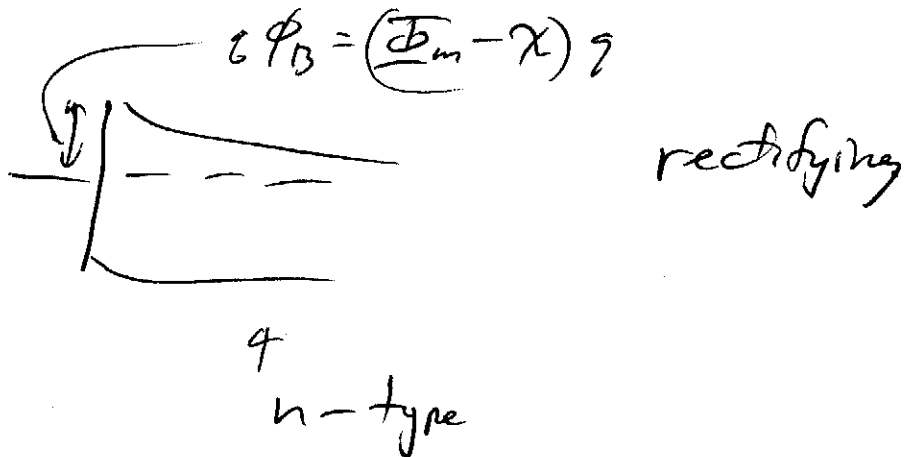 qΦB = (Φm - χ) q
rectifying
4
n-type